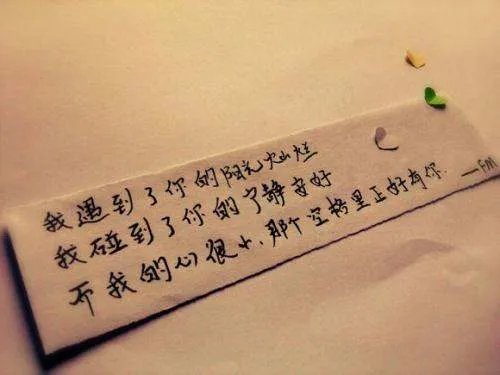 我遇到了你的阳光灿烂
我碰到了你的宁静安好
而我的心很小、那个空格里正好有你. —FM